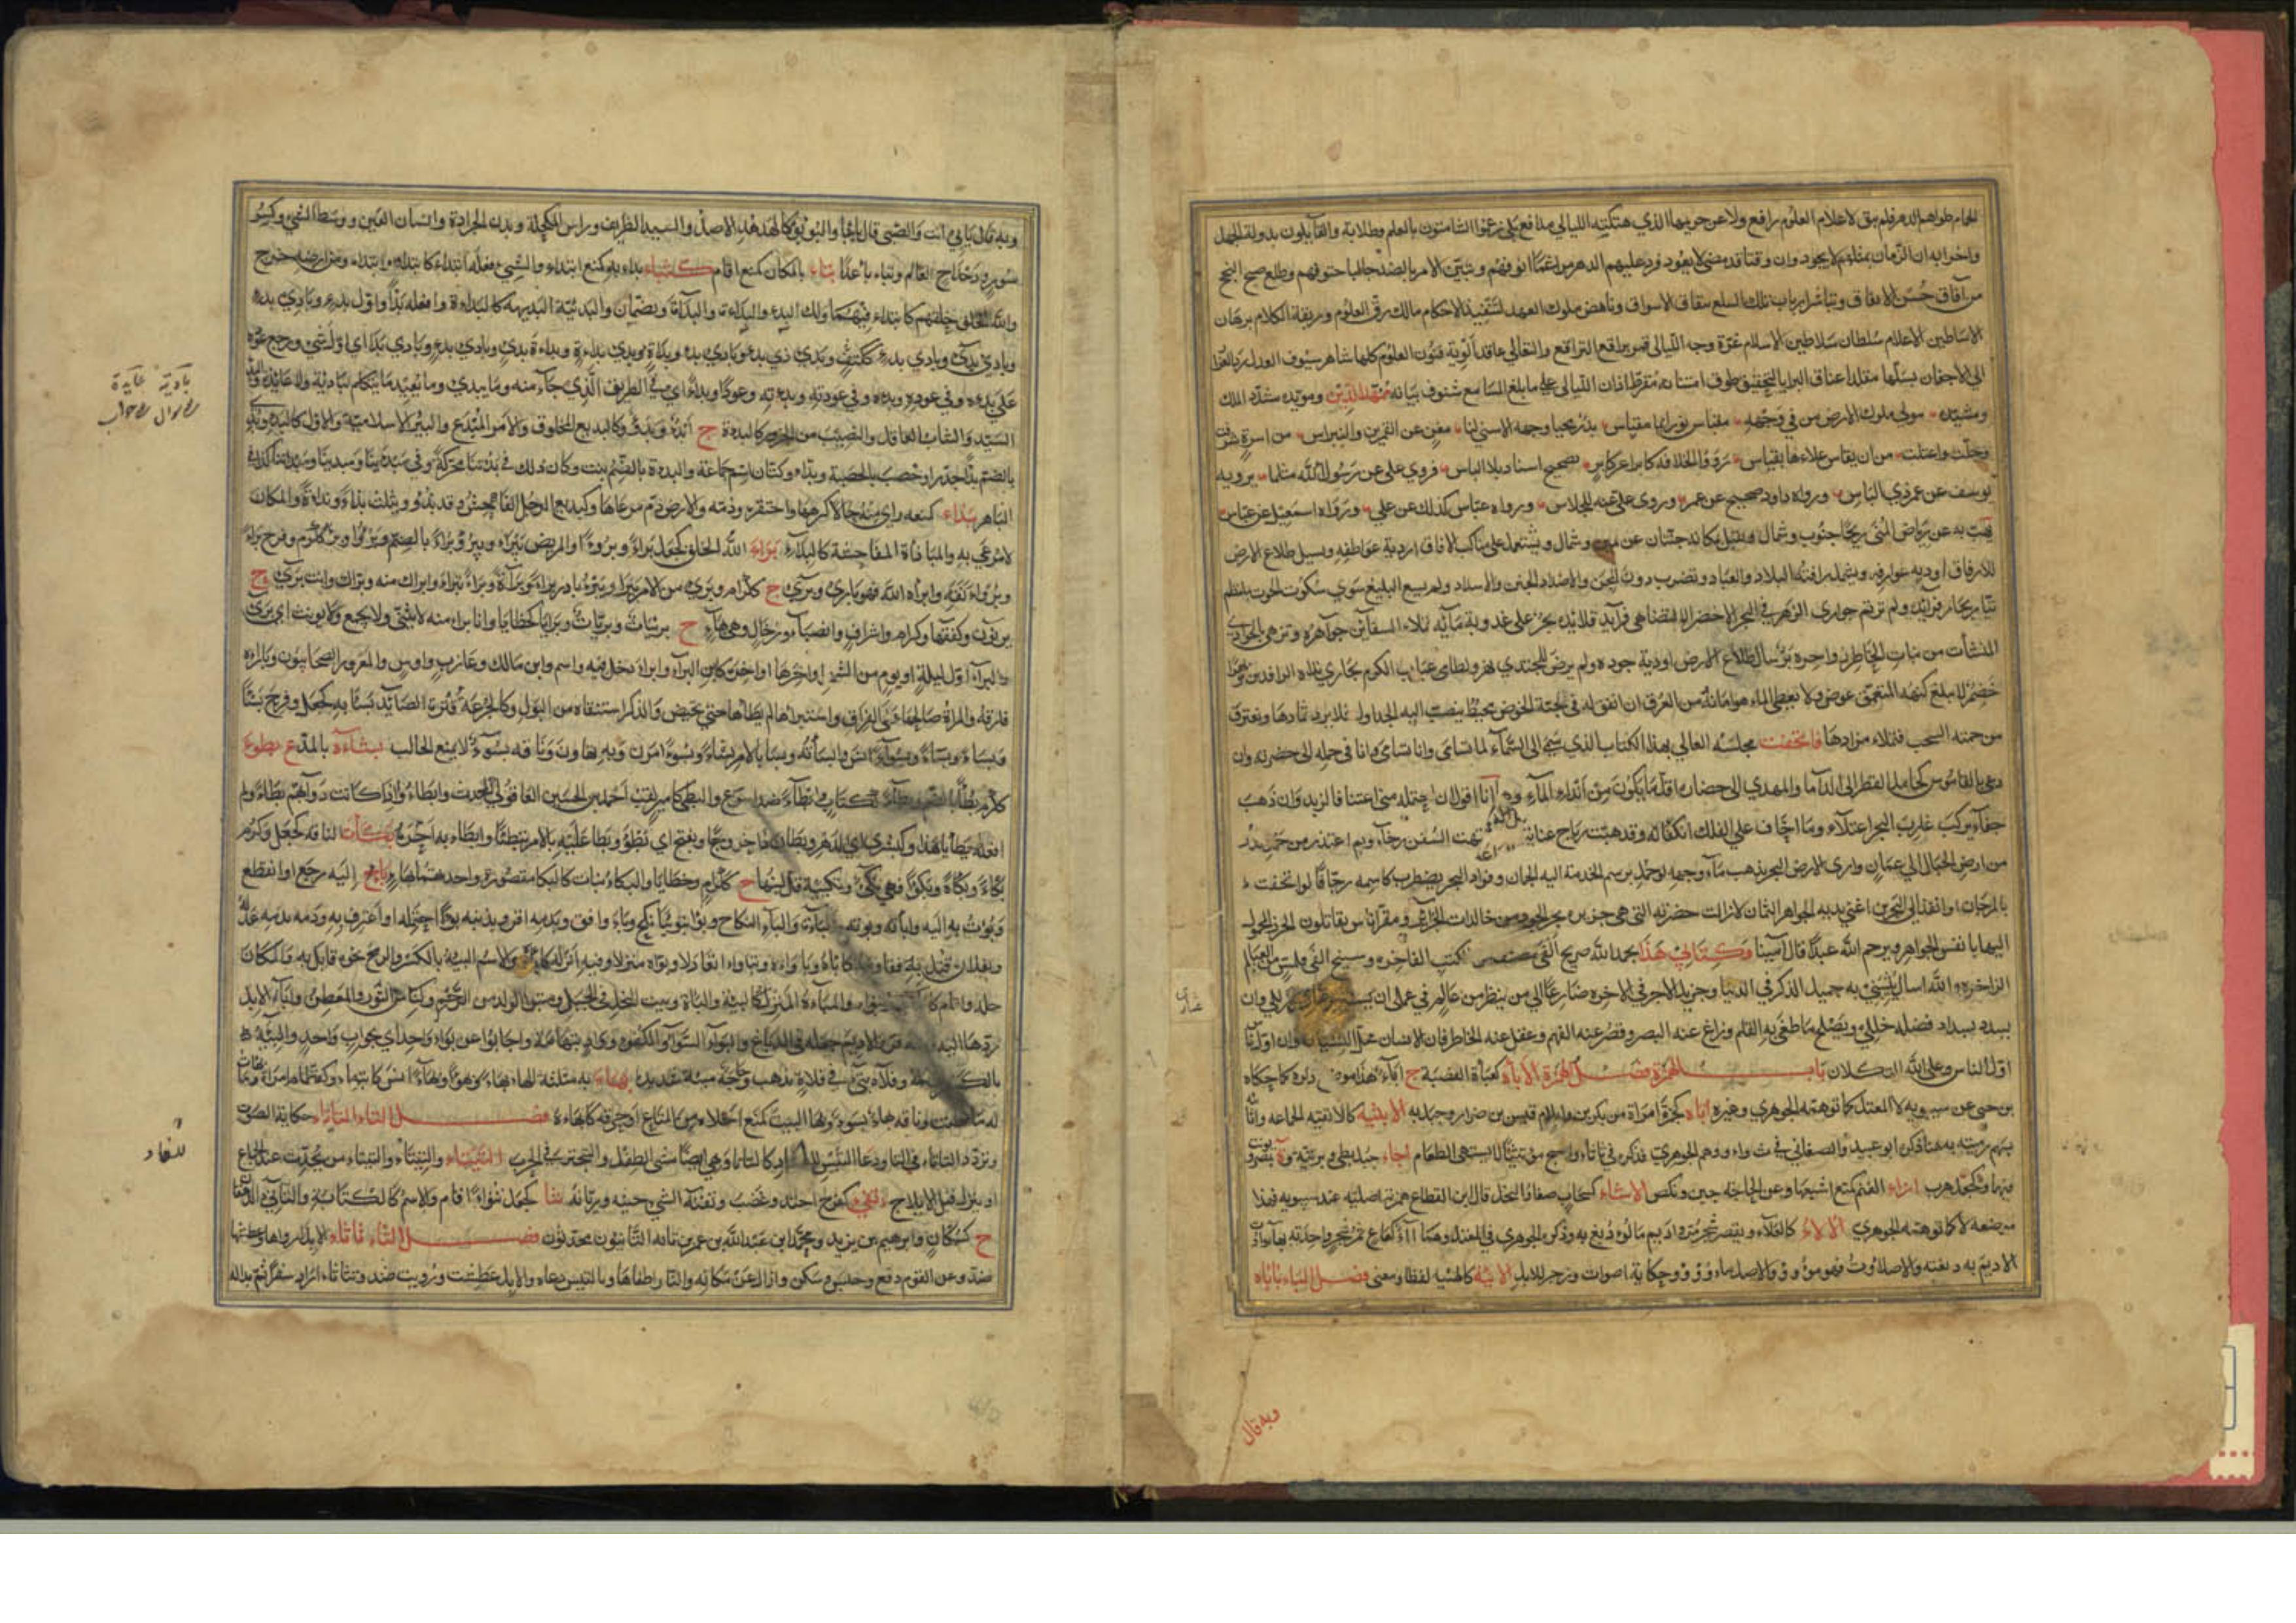 الحمام طواهم الدهر فلم يبق لاعلام العلوم رافع ولا عن حريمها الذي هتكته الليالي مدافع بلى زعموا الشامتون بالعلم وطلابه والقايلون بدولة الجهل
واحزابه ان الزمان بمثلهم لا يجود وان وقتا قد مضى لا يعود فرد عليهم الدهر مراغما انوفهم وتبين الامر بالضد جالبا حتوفهم وطلع صبح النجح
من آفاق حسن الاتفاق وتباشر ارباب تلك السلع بنفاق الاسواق وناهض ملوك العهد لتنفيذ الاحكام مالك رق العلوم وربقة الكلام برهان
الاساطين الاعلام سلطان سلاطين الاسلام غرة وجه الليالي قمر براقع الترافع والتعالي عاقد الوية فنون العلوم كلها شاهر سيوف العدل رد الغرار
الى الاجفان بسلها مقلد اعناق البرايا بالتحقيق طوق امتنانه مقرط اذان الليالى على ما بلغ المسامع شنوف بيانه ممهد الدين ومؤيده مسدد الملك
ومشيده مولى ملوك الارض من في وجهه مقباس نور ايما مقباس بدر محيا وجهه الاسنى لنا مغن عن القمرين والنبراس من اسرة شرفت
وجلت واعتلت من ان يقاس علاءها بقياس رووا الخلافة كابرا عن كابر بصحيح اسناد بلا الباس فروى علي عن رسول الله مثلما يرويه
يوسف عن عمر ذي الباس ورواه داود صحيح عن عمر وروى علي عنه للجلاس ورواه عباس كذلك عن علي ورواه اسمعيل عن عباس
تهب به عن رياض المنى ريحا جنوب وشمال وتقيل بمكانه جنتان عن يمين وشمال وتشتمل على مناكب الافاق اردية عواطفه وتسيل طلاع الارض
للارفاق اودية عوارفه وتشمل رافته البلاد والعباد وتضرب دون المحن والاضداد الجنن والاسداد ولم يسع البليغ سوى سكوت الحوت بملتطم
تيار بحار فوائده ولم ترتم جواري الزهر في البحر الاخضر الا لتضاهي فرايد قلائده بحر على عذوبة مائه تملاء السفاين جواهره وتزهى الجواري
المنشآت من بنات الخاطر زواخره بر سال طلاع الارض اودية جوده ولم يرض للمجتدي نهرا وطامي عباب الكرم يجاري نداه الرافدين وبهرا
خضم لا يبلغ كنهه المتعمق عوض ولا يعطى الماهر امانه من الغرق ان اتفق له في لجته الخوض محيط تنصب اليه الجداول فلا يرد ثمادها وتغترف
من جمته السحب فتملاء مزادها فاتحفت مجلسه العالي بهذا الكتاب الذي سما الى السماء لما تسامى وانا في حمله الى حضرته وان
دعي بالقاموس كحامل القطر الى الدأما والمهدي الى خضاره اقل ما يكون من انداء المآء وها انا اقول ان احتمله مني اعتناء فالزبد وان ذهب
جفآء يركب غارب البحر اعتلآء وما اخاف على الفلك انكفاء وقد هبت رياح عنايته كما اشتهت السفن رخآء وبم اعتذر من حمل الدر
من ارض الجبال الى عمان وارى الارض البحر يذهب مآء وجهه لو حمل برسم الخدمة اليه الجمان وفواد البحر يضطرب كاسمه رجافا لو اتحفت
بالمرجان او انفذ الى البحرين اعنى يديه الجواهر الثمان لا زالت حضرته التي هي جزيرة بحر الجود من خالدات الجزائر ومقر اناس يقابلون الخرز المحمول
اليها بانفس الجواهر ويرحم الله عبدا قال آمينا وكتابي هذا بحمد الله صريح الفي مصنف من الكتب الفاخرة وسنيح الفي قلمس من العيالم
الزاخرة والله اسال ان يثيبني به جميل الذكر في الدنيا وجزيل الاجر في الاخره ضارعا الى من ينظر من عالم في عملي ان يستر عثاري وزللي وان
يسد بسداد فضله خللي ويصلح ما طغى به القلم وزاغ عنه البصر وقصر عنه الفهم وغفل عنه الخاطر فان الانسان محل النسيان وان اول ناس
اول الناس وعلى الله التكلان باب الهمزة فصل الهمزة الاباءة كعباءة القصبة ج اباء هذا موضع ذكره كما حكاه
بن جني عن سيبويه لا المعتل كما توهمه الجوهري وغيره اتاه كحمزة امراة من بكر بن وايل ام قيس بن ضرار وجبل به الاثئية كالاثفية الجماعة واثأ
بهم رميته به هنا ذكره ابو عبيد والصغاني في ث واء ووهم الجوهري فذكره في ثاثاء واصبح مؤتثئا لا يشتهى الطعام اجاء جبل لطي وبزنته وة بمصر ويؤنث
فيهما وكجعل هرب ازاء الغنم كمنع اشبعها وعن الحاجة جبن ونكص الاشاء كسحاب صغار النخل قال ابن القطاع همزته اصلية عند سيبويه فهذا
موضعه لا كما توهمه الجوهري الالاء كالعلاء ويقصر شجر مر واديم مالوء دبغ به وذكره الجوهري في المعتل وهما آء كعاع ثمر شجر واحدته بهاء واأت
الاديم به دبغته والاصل اؤت فهو مؤوء والاصل ماوؤ وحكاية اصوات وزجر للابل الايئة كالهيئة لفظا ومعنى فصل الباء باباه
وبه قال
وبه قال بابي انت والصبي قال بابا والبؤبؤ كالهدهد الاصل والسيد الظريف وراس المكحلة وبدن الجرادة وانسان العين ووسط الشي وكسر
سور ودحداح العالم وتباباء عدا بتاء بالمكان كمنع اقام كبثاء بداء به كمنع ابتداء والشيء فعله ابتداء كابداءه وابتداه ومن ارضه خرج
والله الخلق خلقهم كابداء فيهما ولك البدء والبداءة والبداءة ويضمان والبديئة البديهة كالبداءة وافعله بدأ واول بدء وبادي بدء
وبادي بدي وبادي بدء ككتف وبدي ذي بدء وبادي بدء وبداة بدء وبدي بداءة وبداءة بدي وبادي بدء وبادي بداء اي اول شي ورجع عوده
على بدئه وفي عوده وبدئه وفي عودته وبدءته وعودا وبدءا اي في الطريق الذي جاء منه وما يبدي وما يعيد ما يتكلم ببادية ولا عائدة والبدء
السيد والشاب العاقل والنصيب من الجزور كالبداءة ج ابداء وبدؤ وكالبديع المخلوق والامر المبدع والبئر الاسلامية والاول كالبدء وبدي
بالضم بداء جدر او حصب بالحصبة وبداء وكتان اسم جماعة والبدءة بالضم نبت وكان ذلك في بداتنا محركة وفي مبدانا
الباهر بذاء كمنعه راى منه حالا كرهها واحتقره وذمه والارض ذم مرعاها وكبديع الرجل الفاحش وقد بذؤ ويثلث بذاء وبذاءة والمكان
لا مرعى به والمباذأة المفاحشة كالبذاء براء الله الخلق كجعل برءا وبروءا والمريض يبراء ويبرؤ برءا بالضم وبروءا وبرؤ ككرم وفرح برءا
وبرؤاء نقه وابراه الله فهو باري وبري ج ككرام وبري من الامر يبراء ويبرؤ نادر براء وبراءة وبروءا تبراء وابراك منه وبراك وانت بري ج
بريئون وكفقهاء وكرام واشراف وانصباء ورخال وهي بهاء ج بريئات وبريات وبرايا كخطايا وانا براء منه لا يثنى ولا يجمع ولا يؤنث اي بري
والبراء اول ليلة او يوم من الشهر او اخرها او اخره كابن البراء وابراء دخل فيه واسم وابن مالك وعازب واوس والمعرور الصحابيون وباراه
فارقه والمراة صالحها على الفراق واستبراها لم يطاها حتى تحيض والذكر استنقاه من البول وكالجرعة قترة الصائد بسأ به كجعل وفرح بسئا
وبساء وبسؤا انس وابساته وبسا بالامر بساء وبسؤا مرن وبه تهاون وناقة بسوء لا تمنع الحالب بشاءة بالمد ع بطوء
ككرم بطأ بالضم وبطاء ككتاب وابطاء ضد اسرع والبطي كامير لقب احمد بن الحسين العاقولي المحدث وابطاءوا اذا كانت دوابهم بطاء ولم
افعله بطأ يا هذا وكبشرى اي الدهر وبطان ذا خروجا ويفتح اي بطؤ وبطا عليه بالامر تبطيئا وابطاء به اخره بكأت الناقة كجعل وكرم
بكاء وبكاءة وبكوءا فهي بكي وبكيئة قل لبنها ج ككرام وخطايا والبكاء نبات كالبكا مقصورة واحدتهما بهاء باء اليه رجع او انقطع
وبؤت به اليه وابأته وبوته والباءة والباء النكاح وبوأ تبويئا نكح وباء وافق وبدمه اقر وبذنبه بوءا احتمله او اعترف به ودمه بدمه عدله
وبفلان قتل به فقاومه كاباءه وباواه وتباواء تعادلا وبواه منزلا وفيه انزله كاباءه والاسم البيئة بالكسر والرمح نحوه قابله به والمكان
حله واقام كاباء به وتبواء والمباءة المنزل كالبيئة والباءة وبيت النحل في الجبل ومتبوا الولد من الرحم وكناس الثور والمعطن واباء الابل
ردها اليه ومنه فر والاديم جعله في الدباغ والبواء السواء والكفؤ وواد بتهامة واجابوا عن بواء واحد اي بجواب واحد والبيئة
بالكسر الحالة وفلاة تبيء في فلاة تذهب وحاجة مبيئة شديدة بهاء به مثلثة الهاء بهاء وبهوءا وبهاء انس كابتهاء وكقطام امراة وما
له ما فطنت وناقة بهاء بسوء وبهاء البيت كمنع اخلاه من المتاع او خرقه كابهاءه فصل التاء التاتاء حكاية الصوت
وتردد التاتاء في التاء ودعاء التيس للسفاد كالتاتاء وهي ايضا مشي الطفل والتبختر في الحرب التيتاء والتيتاء والتيتاء من يحدث عند الجماع
او ينزل قبل الايلاج تفئ كفرح احتد وغضب وتفئة الشي حينه وزمانه تنا كجعل تنوءا اقام والاسم كالكتابة والتاني الدهقان
ج كسكان وابرهيم بن يزيد ومحمد بن عبد الله بن عمر بن تانه التانئون محدثون فصل الثاء ثاثاء الابل ارواها وعطشها
ضد وعن القوم دفع وحبس وسكن وازال عن مكانه والنار اطفاها وبالتيس دعاه والابل عطشت ورويت ضد وتثاثاء اراد سفرا ثم بدا له
بادية عايدة
للسفاد